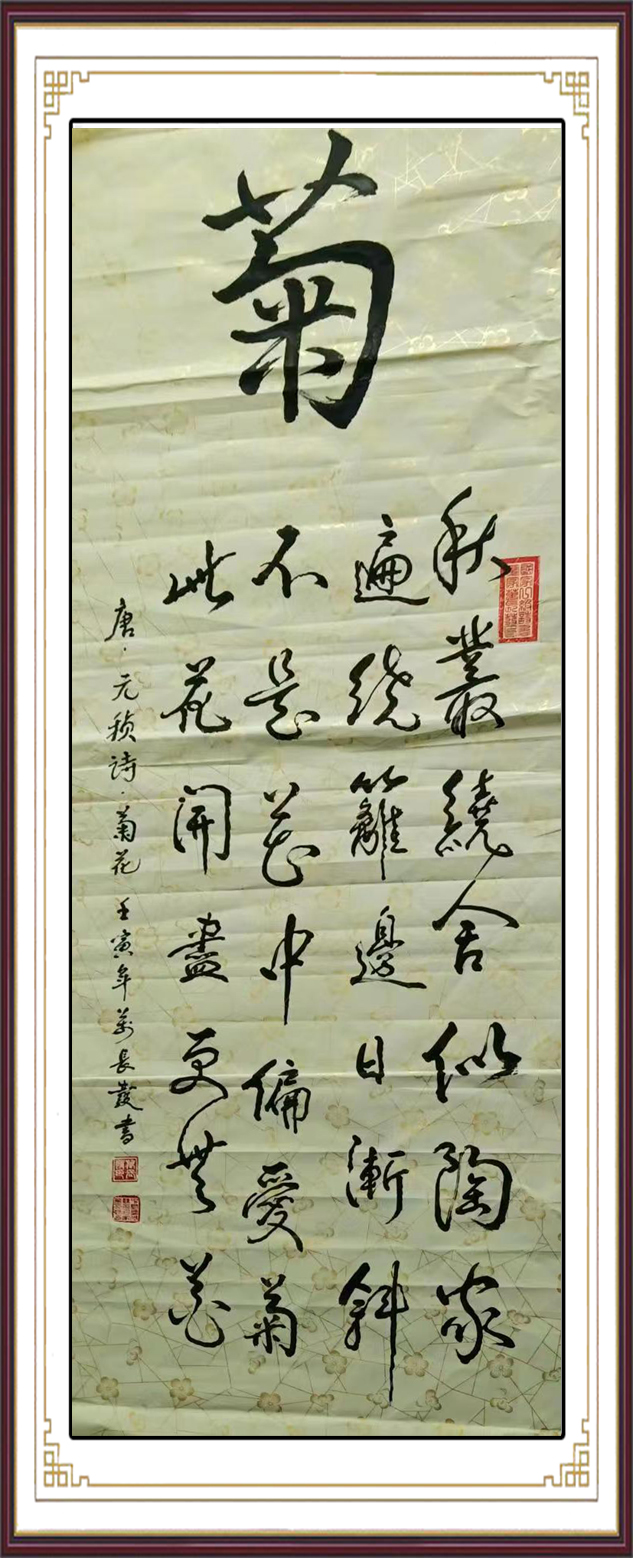 菊
秋叢繞舍似陶家
遍繞籬邊日漸斜
不是花中偏愛菊
此花開盡更無花
唐·元稹詩·菊花 壬寅年萬長發書